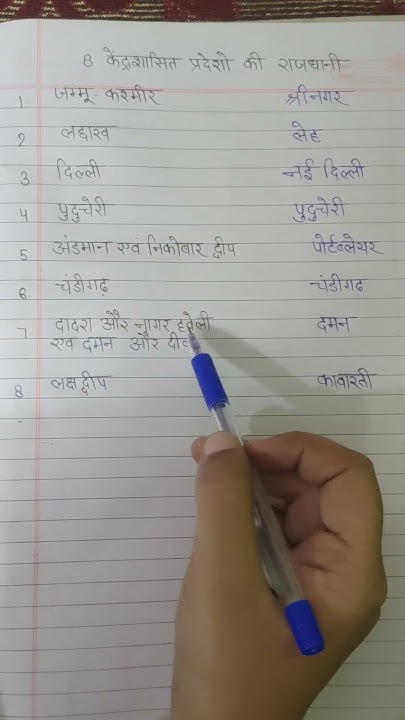 8 केंद्रशासित प्रदेशो की राजधानी
1. जम्मू-कश्मीर श्रीनगर
2. लद्दाख लेह
3 दिल्ली नई दिल्ली
4 पुदुचेरी पुदुचेरी
5 अंडमान एवं निकोबार द्वीप पोर्टब्लेयर
6. चंडीगढ़ चंडीगढ़
7. दादरा और नागर हवेली दमन
एवं दमन और दीव
8 लक्षद्वीप कावारती